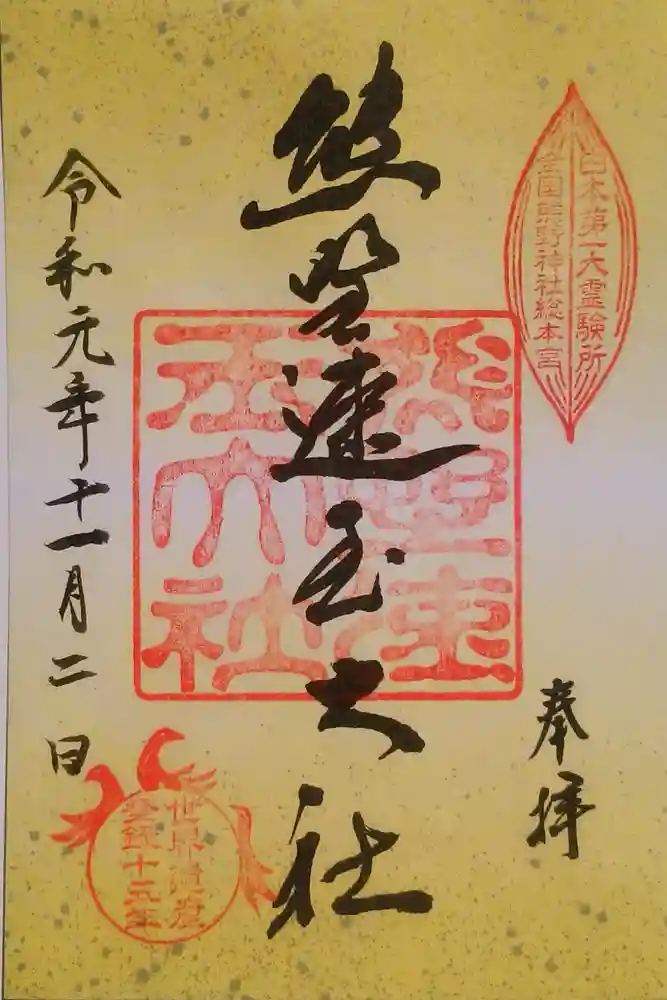 日本第一大霊験所
全国熊野神社総本宮
奉拝
熊野速玉大社
熊野速
玉大社
令和元年十一月二日
世界遺産
登録十五年